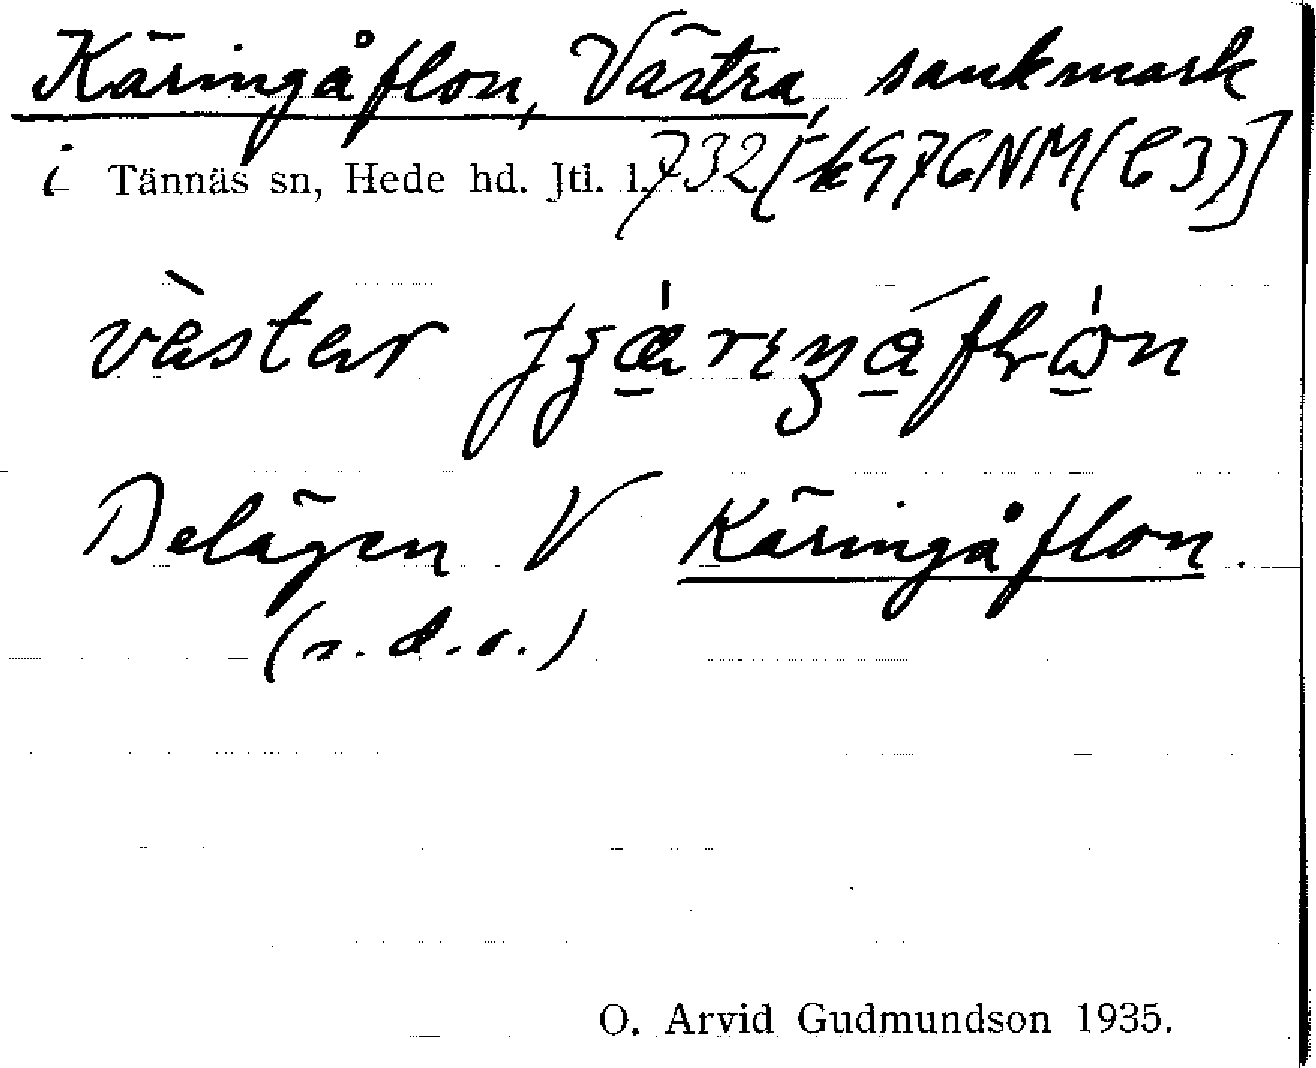 Käringåflon, Västra, sankmark
i Tännäs sn, Hede hd. Jtl. l. 732 [k976NM(C3)]
vàstar
Belägen V Käringåflon.
(s.d.o.)
O. Arvid Gudmundson 1935.